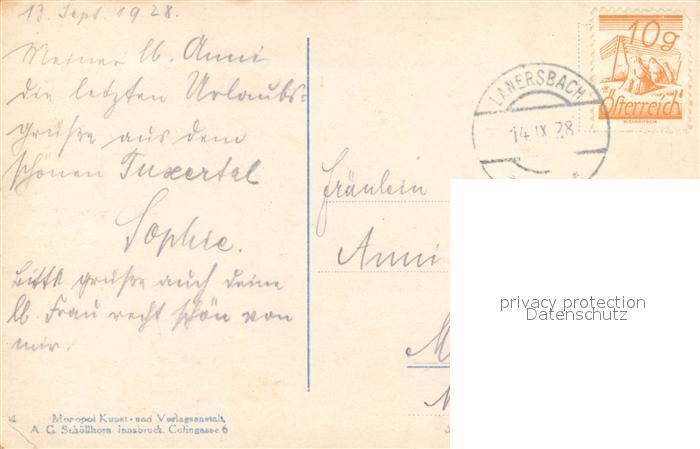 13. Sept. 1928.
Meiner lb. Anni
die letzten Urlaubs=
grüße aus dem
schönen Tuxertal
Sophie.
Bitte grüße auch deine
lb. Frau recht schön von
mir.
Monopol Kunst- und Verlagsanstalt,
A. G. Schöllhorn, Innsbruck, Colingasse 6
10g
Österreich
LANERSBACH
14 IX 28
Fräulein
Anni
M
privacy protection
Datenschutz